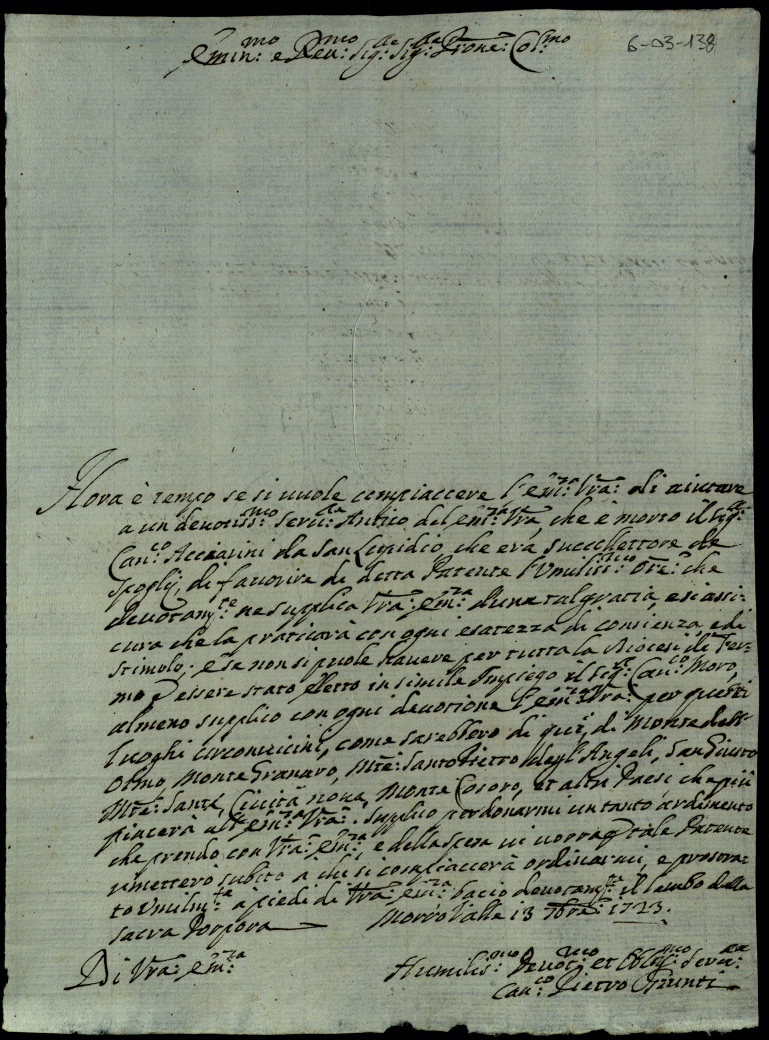 Emin:mo e Reu:mo Sig:re Sig:re Prone: Col:mo
6-03-138
Hora è tempo se si uuole compiaccere l'Em:za Vra: di aiutare
a un deuotiss:mo seru:re Antico dell'em:za Vra, che è morto il Sig:r
Can:co Acciarini da San Lepidio, che era succollettore de
Spoglij, di fauorire di detta Patente l'Vmiliss:mo Ore: che
deuotam:te ne supplica Vra: Em:za d'una tal gratia, e si assi:
cura che la praticarà con ogni esatezza di consienza, e di
stimolo; e se non si puole hauere per tutta la Diocesi di Fer:
mo p essere stato eletto in simile Impiego il Sig:r Can:co Moro,
almeno supplico con ogni deuotione l'Em:za Vra: per questi
luoghi circonuicini, come sarebbero di qui, di Monte dell'
Olmo, Monte Granaro, Mte: Santo Pietro degl'Angeli, San Giusto
Mte: Santo, Ciuità noua, Monte Cosoro, et altri Paesi che più
piacerà all'Em:za Vra:. Supplico perdonarmi un tanto ardimento
che prendo con Vra: Em:za, e della spesa ui uorrà p tale Patente
rimetterò subito a chi si compiaccerà ordinarmi, e prostra:
to Vmilm:te a piedi di Vra: Em:za bacio deuotam:te il lembo della
sacra Porpora Morro Valle 13 7bre: 1723.
Di Vra: Em:za
Humilis:mo Deuot:mo et Obbl:mo Seru:re
Can:co Pietro Prunti